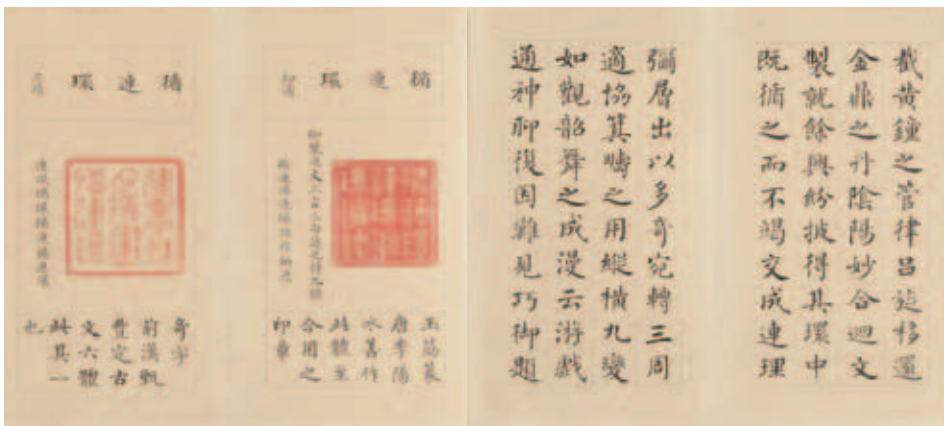 截黃鐘之管律呂迭移還
金鼎之丹陰陽妙合迴文
製就餘興紛披得其環中
既循之而不竭交成連理
彌層出以多奇宛轉三周
適協箕疇之用縱橫九變
如觀韶舞之成漫云游戲
通神聊復因難見巧御題
循連環
玉筯篆
唐李陽
氷善作
此體
合用之
印章
循連環
奇字
前漢甄
豐定古
文六體
此其一
也